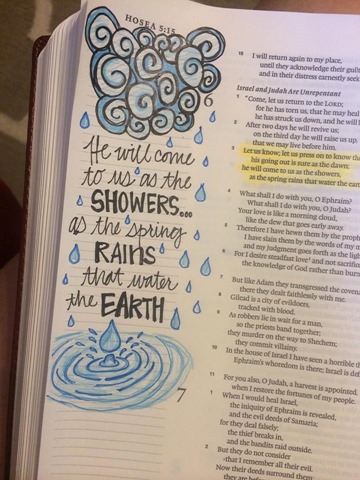 HOSEA 5:15
6
He will come
to us as the
SHOWERS...
as the spring
RAINS
that water
the EARTH
7
15 I will return again to my place,
until they acknowledge their guilt
and in their distress earnestly see
Israel and Judah Are Unrepentant
1 "Come, let us return to the LORD;
for he has torn us, that he may heal
he has struck us down, and he will
2 After two days he will revive us;
on the third day he will raise us up,
that we may live before him.
3 Let us know; let us press on to know
his going out is sure as the dawn;
he will come to us as the showers,
as the spring rains that water the
4 What shall I do with you, O Ephraim?
What shall I do with you, O Judah?
Your love is like a morning cloud,
like the dew that goes early away.
5 Therefore I have hewn them by the
I have slain them by the words of my
and my judgment goes forth as the light
6 For I desire steadfast love and not
the knowledge of God rather than burnt
7 But like Adam they transgressed the
there they dealt faithlessly with me.
8 Gilead is a city of evildoers,
tracked with blood.
9 As robbers lie in wait for a man,
so the priests band together;
they murder on the way to Shechem;
they commit villainy.
10 In the house of Israel I have seen a horrible
Ephraim's whoredom is there; Israel is
11 For you also, O Judah, a harvest is appointed.
when I restore the fortunes of my people.
1 When I would heal Israel,
the iniquity of Ephraim is revealed,
and the evil deeds of Samaria;
for they deal falsely;
the thief breaks in,
and the bandits raid outside.
2 But they do not consider
that I remember all their evil.
Now their deeds surround them;